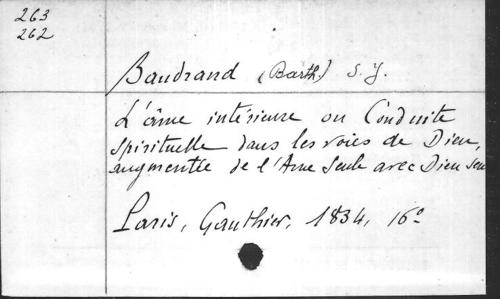 263
262
Baudrand (Barth.) S. J.
L'âme intérieure ou Conduite
spirituelle dans les voies de Dieu,
augmentée de l'Ame seule avec Dieu seul
Paris, Gauthier, 1834, 16°